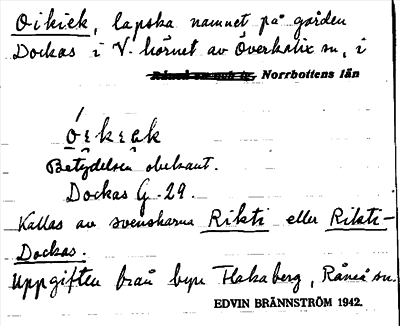 Oikiek, lapska namnet på gården
Dockas i V. hörnet av Överkalix sn, i
Råneå sn och tg, Norrbottens län
Óikiek
Betydelsen obekant.
Dockas G. 29.
Kallas av svenskarna Rikti eller Rikti-
Dockas.
Uppgiften från byn Flakaberg, Råneå sn.
EDVIN BRÄNNSTRÖM 1942.